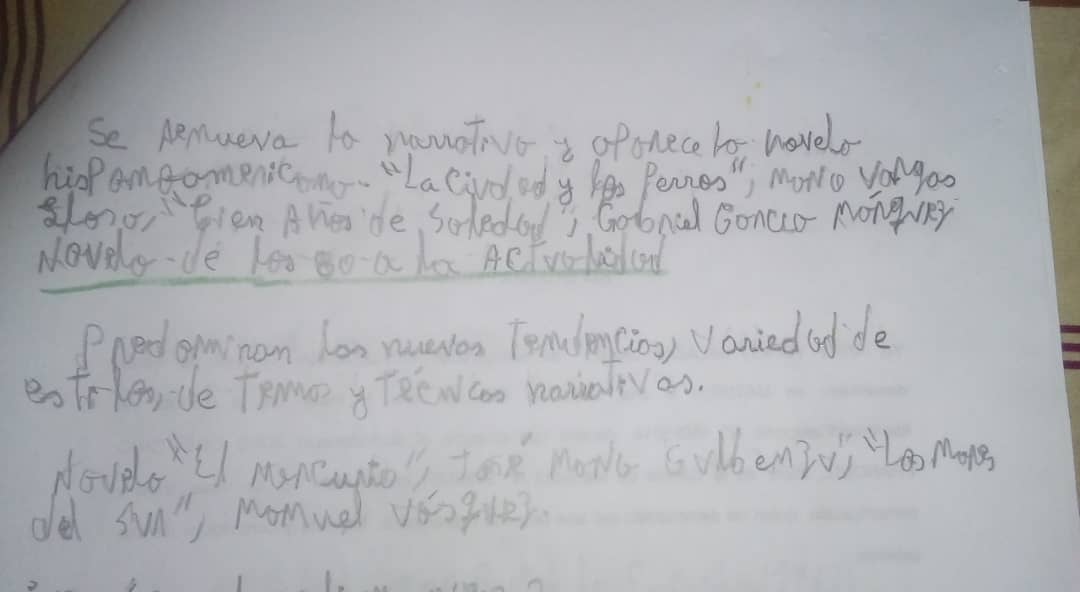 Se renueva la narrativa y aparece la novela
hispanoamericano. "La Ciudad y los Perros"; Mario Vargas
Llosa, "Cien Años de Soledad"; Gabriel Garcia Márquez
Novela de los 80 a la Actualidad
Predominan las nuevas Tendencias, Variedad de
estilos, de Temas y Técnicas narrativas.
Novela "El Mercurio", José María Guelbenzu; "Los Mares
del Sur", Manuel Vásquez.